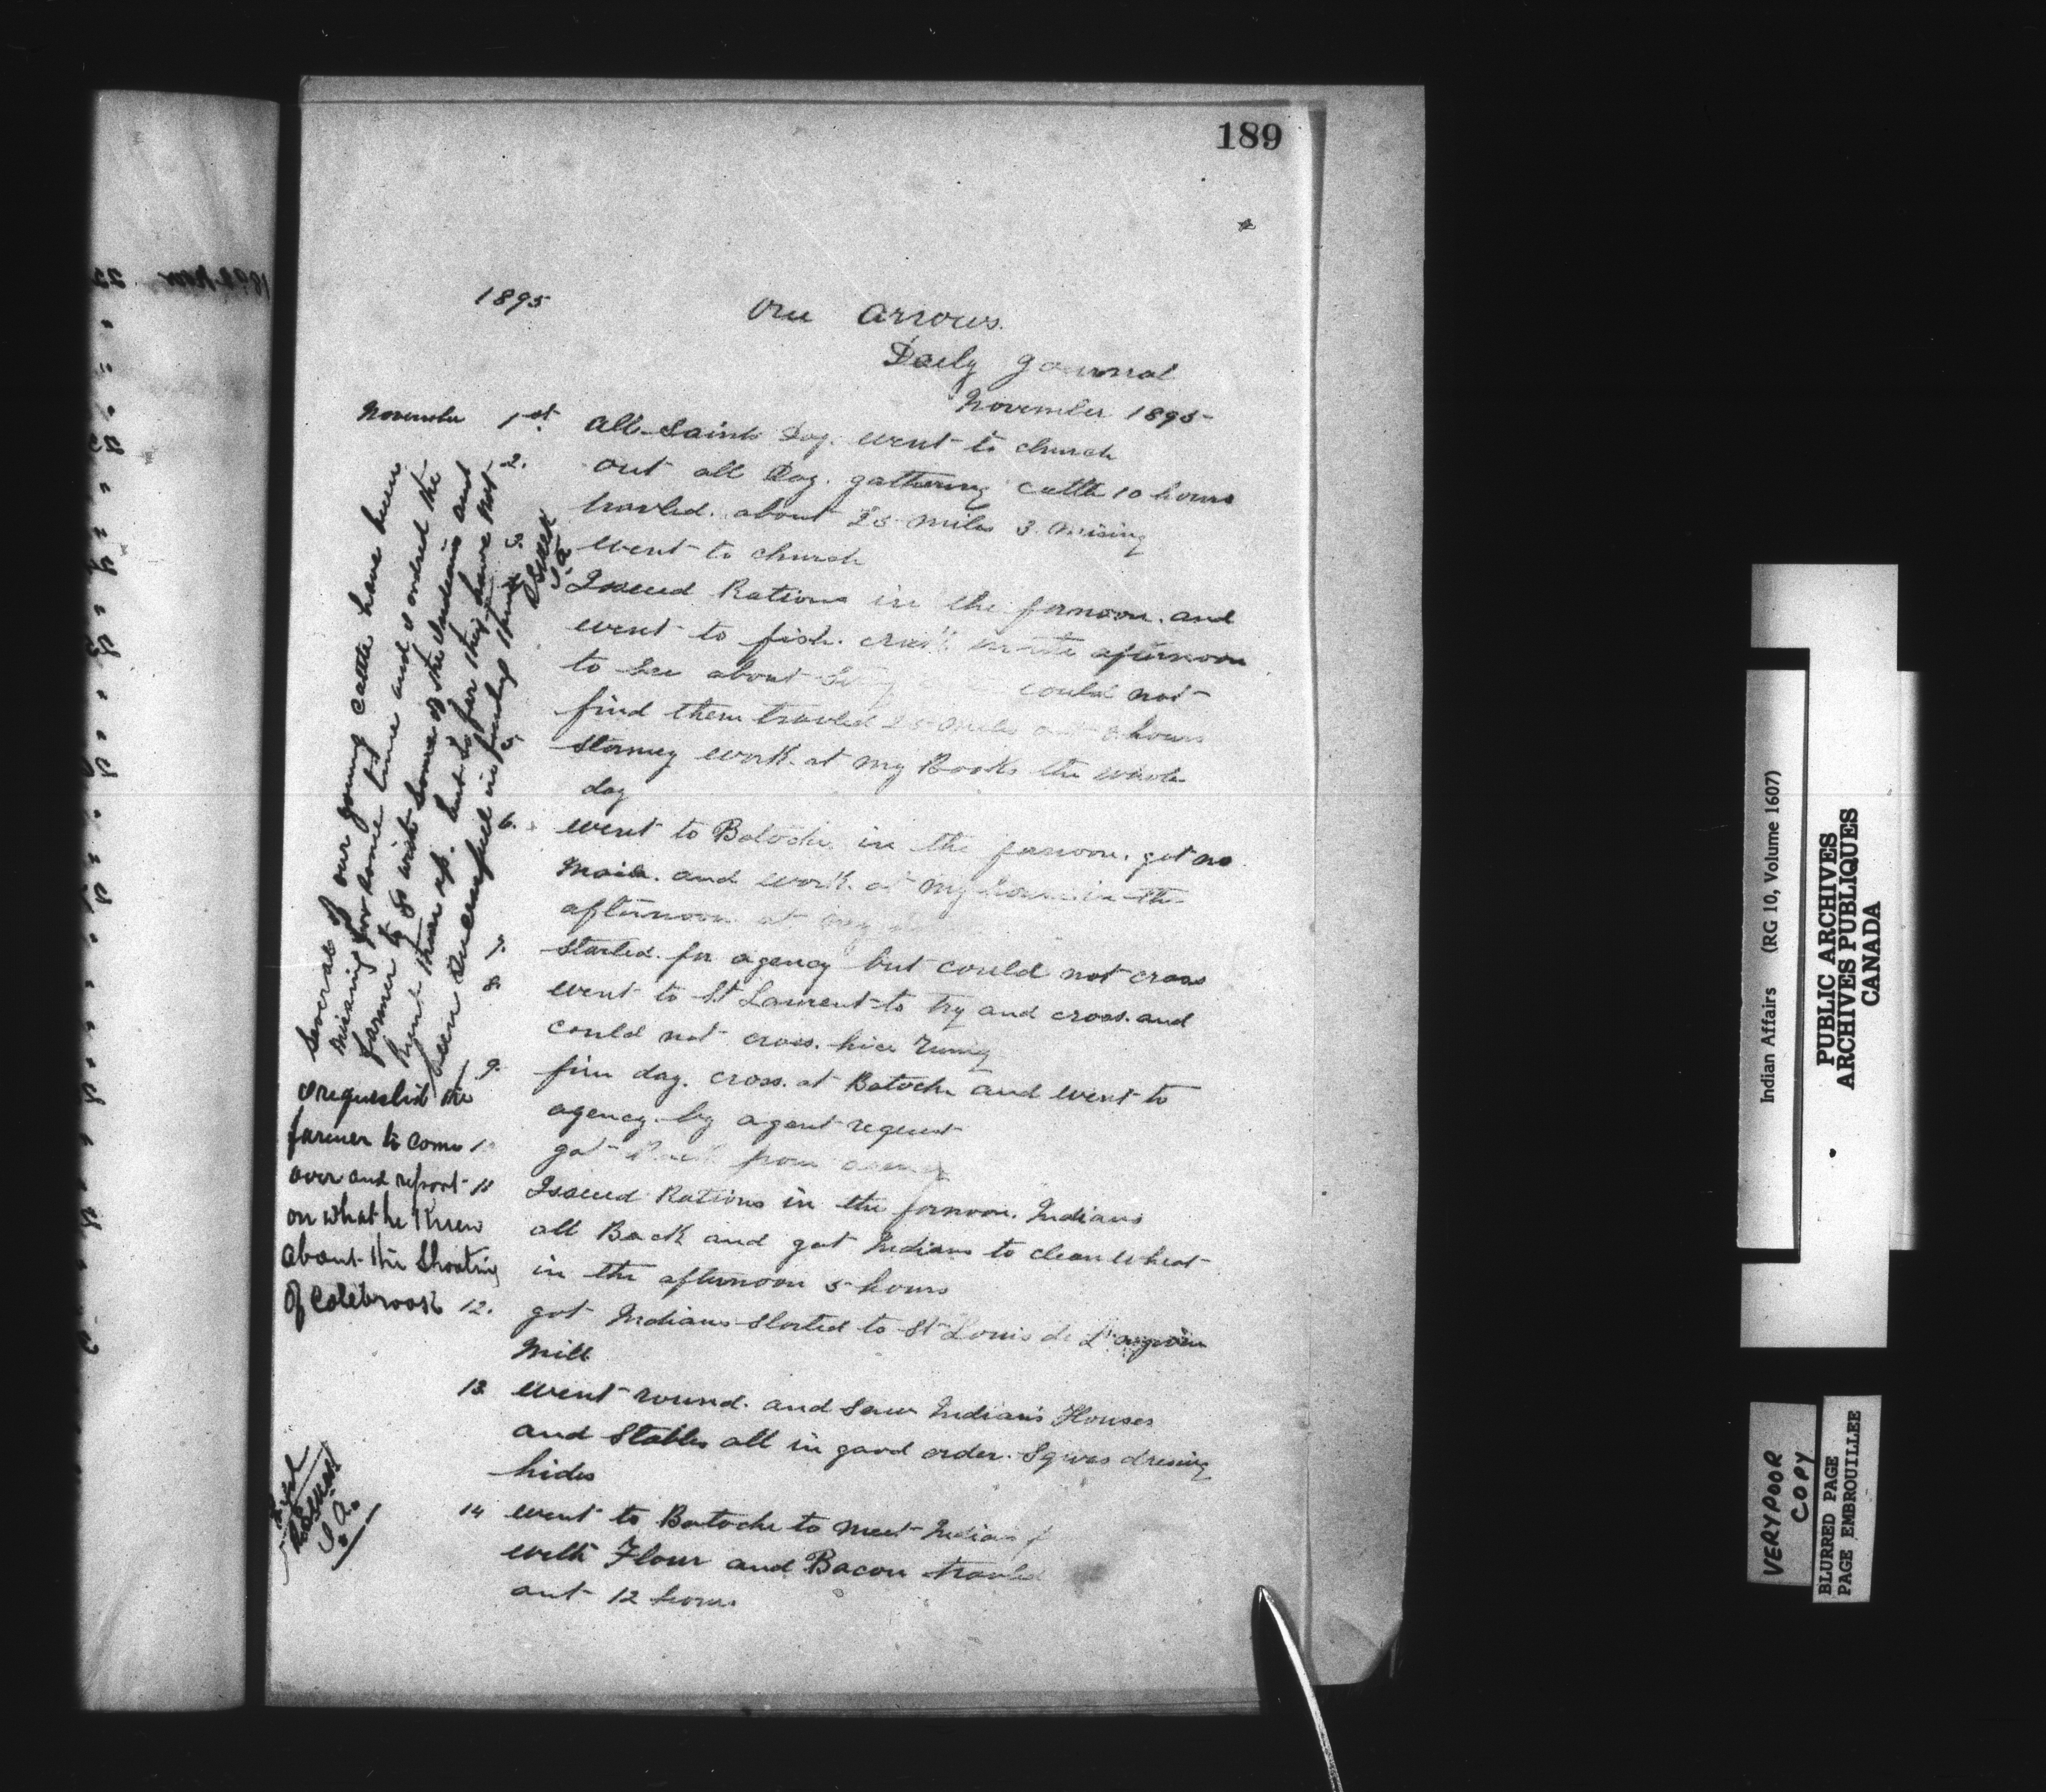 189
1895
One Arrows.
Daily Journal
November 1895
November 1st. All Saints Day. went to church
2. out all Day. gathering cattle 10 hours
traveled. about 25 miles 3. mising
3. went to church
Issued Rations in the fornoon. and
went to fish. creek in the afternoon
to see about could not
find them traveled 25 miles out hours
5. Stormey work. at my Books the whole
day
6. went to Batoche in the fornoon. got no
Mail. and work. at my house in the
afternoon at my
7. Started. for agency but could not cross
8. went to St Laurent to try and cross. and
could not cross. hice runing
9. fine day. cross. at Batoche and went to
agency. by agent request
10 got Back from agency
11 Issued Rations in the fornoon. Indians
all Back and got Indians to clean wheat
in the afternoon 5 hours
12. got Indians started to St Louis de
Mill
13. went round. and saw Indian's Houses
and Stables all in good order. Sqwas dresing
hides
14 went to Batoche to meet Indians
with Flour and Bacon traveled
out 12 hours.
Several of our young cattle have been
missing for some time and I ordered the
farmer to go with some of the Indians and
hunt them up. but so far they have not
been successful in finding them
I.A.
I requested the
farmer to come
over and report
on what he knew
about the Shooting
of Colebrook
I.A.
Indian Affairs (RG 10, Volume 1607)
PUBLIC ARCHIVES
ARCHIVES PUBLIQUES
CANADA
VERY POOR
COPY
BLURRED PAGE
PAGE EMBROUILLEE